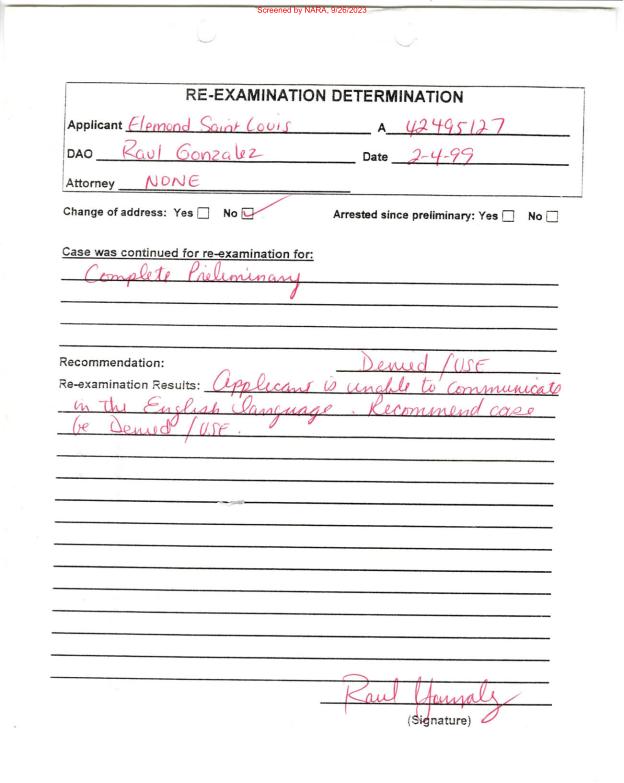 Screened by NARA, 9/26/2023
RE-EXAMINATION DETERMINATION
Applicant Elemond Saint Louis A 42495127
DAO Raul Gonzalez Date 2-4-99
Attorney NONE
Change of address: Yes ☐ No ☑ Arrested since preliminary: Yes ☐ No ☐
Case was continued for re-examination for:
Complete Preliminary
Recommendation: Denied / USE
Re-examination Results: Applicant is unable to communicate
in the English language. Recommend case
be Denied / USE.
Raul Gonzalez
(Signature)